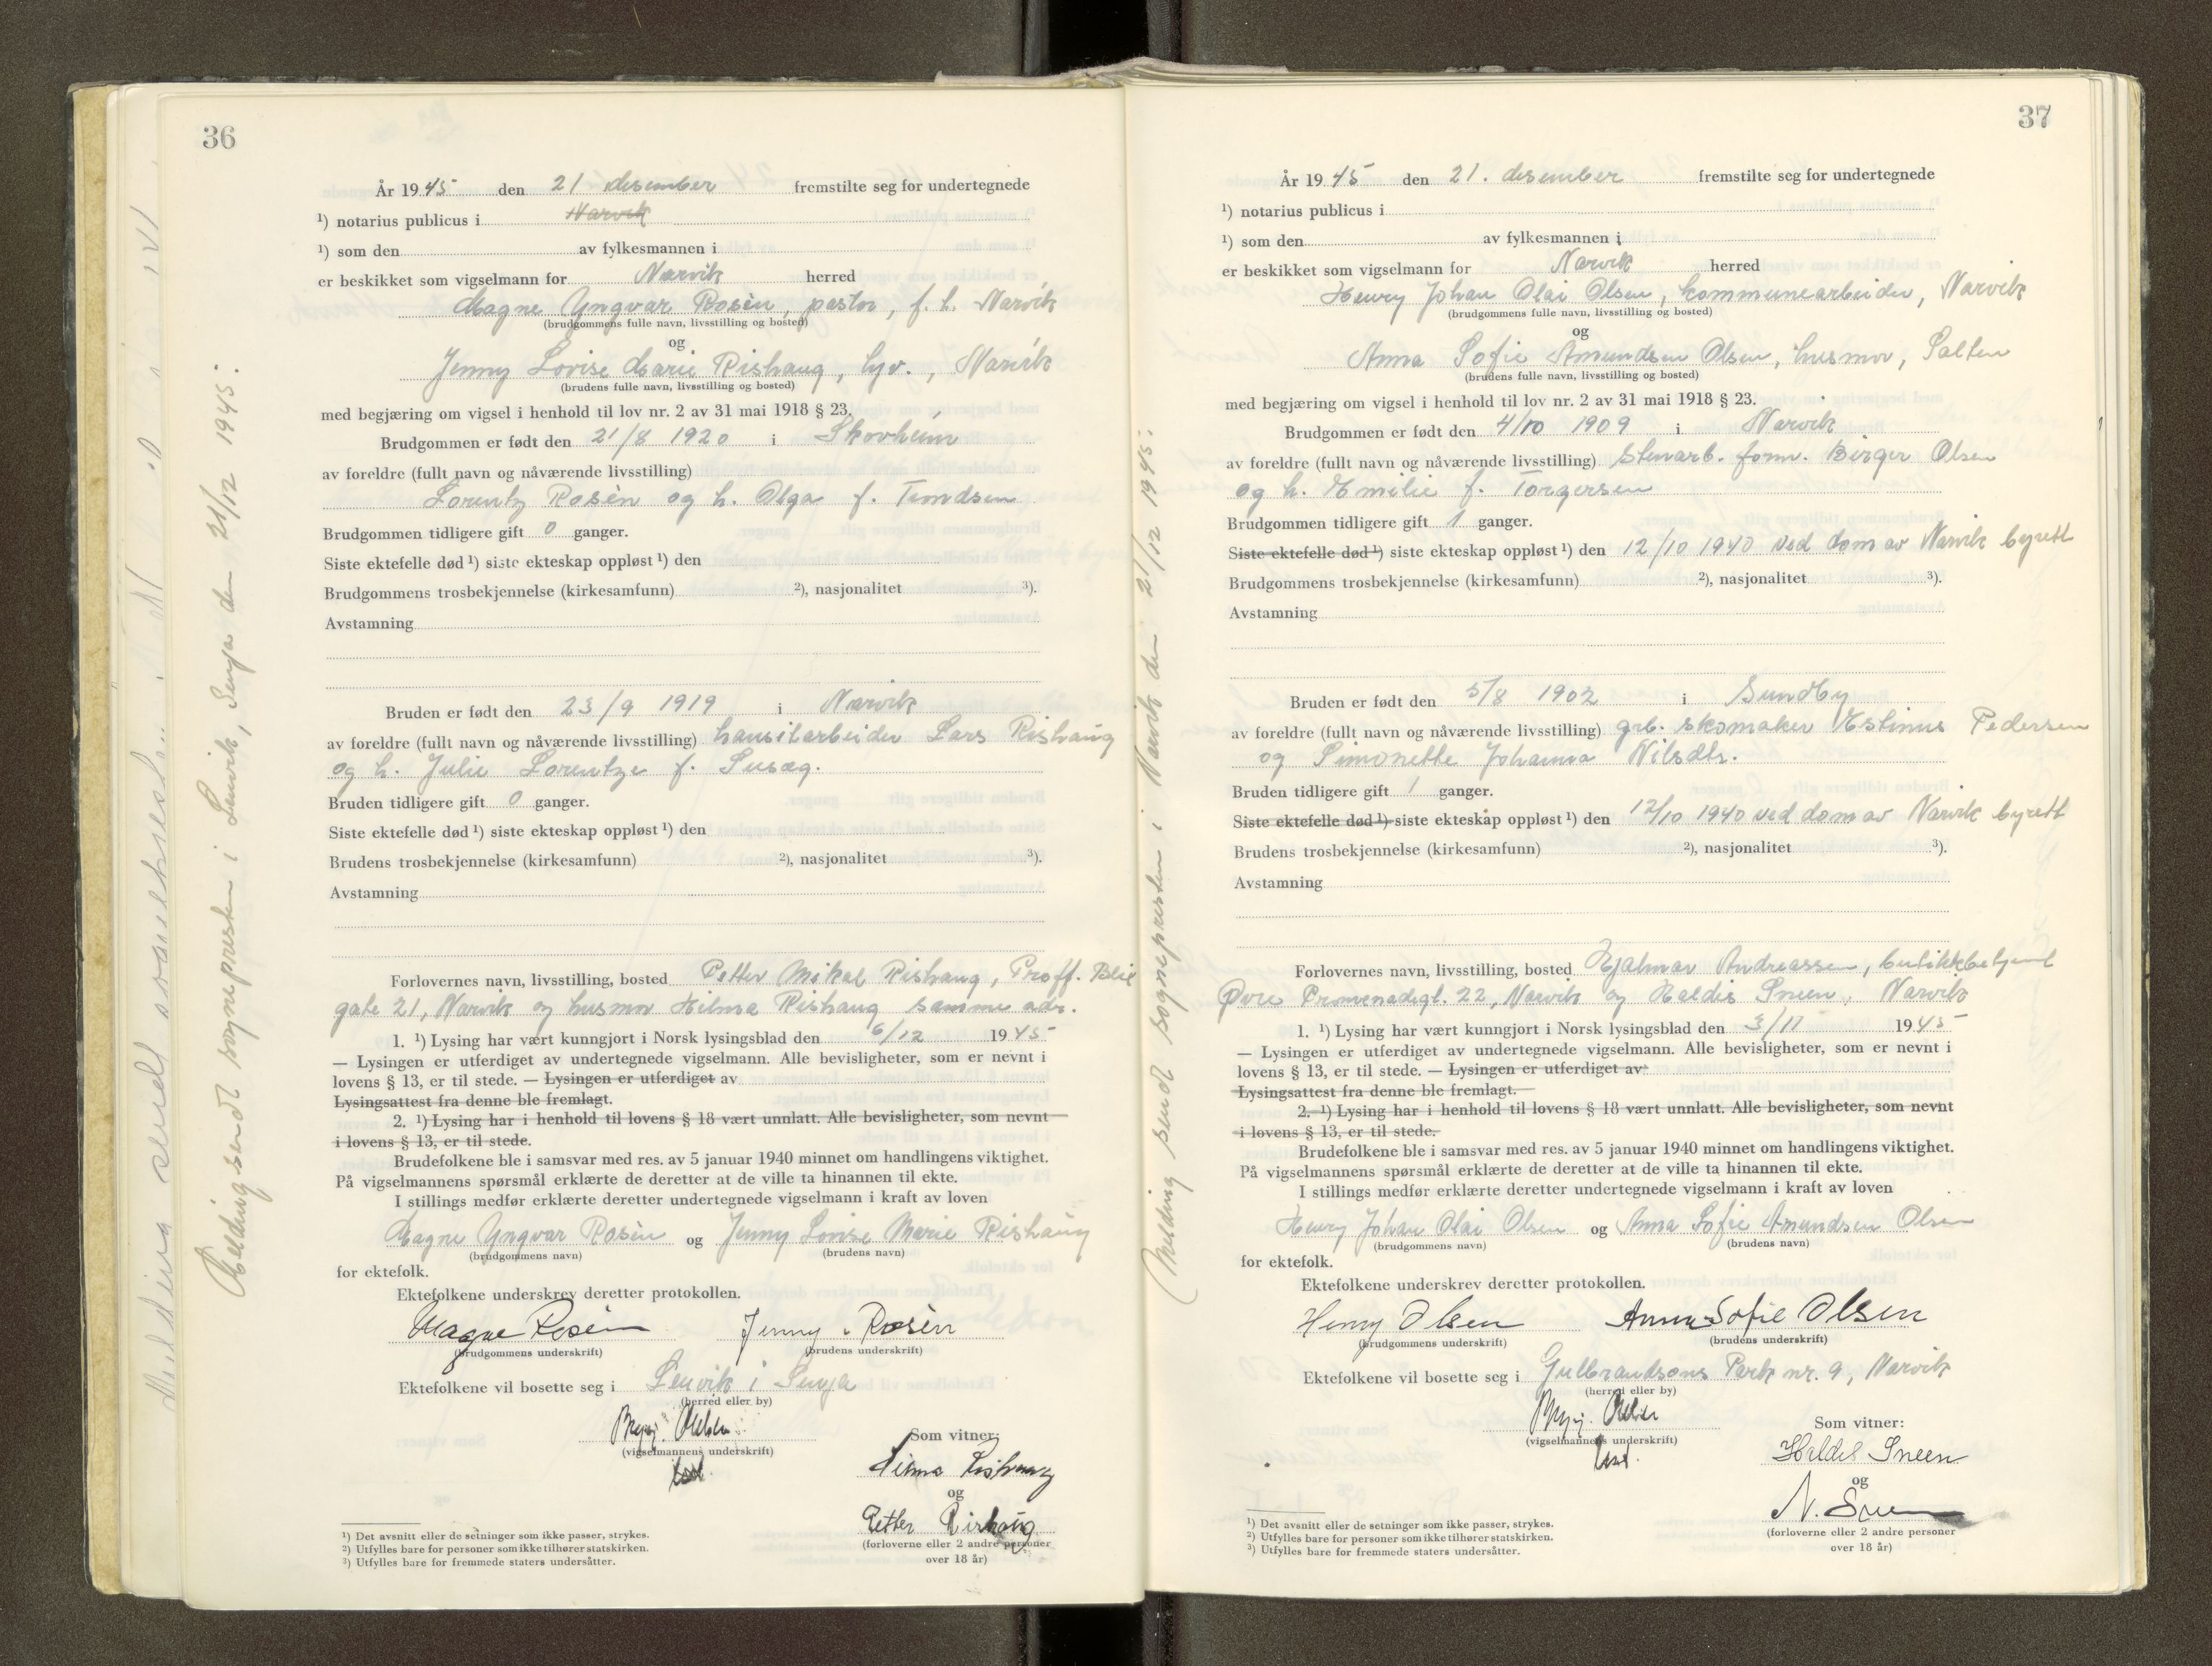 36
År 1945 den 21 desember fremstilte seg for undertegnede
¹) notarius publicus i Narvik
¹) som den av fylkesmannen i
er beskikket som vigselmann for Narvik herred
Magne Yngvar Rosèn, pastor, f. h. Narvik
(brudgommens fulle navn, livsstilling og bosted)
og
Jenny Lovise Marie Rishaug, hjv., Narvik
(brudens fulle navn, livsstilling og bosted)
med begjæring om vigsel i henhold til lov nr. 2 av 31 mai 1918 § 23.
Brudgommen er født den 21/8 1920 i Skovheim
av foreldre (fullt navn og nåværende livsstilling)
Lorentz Rosèn og h. Olga f.
Brudgommen tidligere gift 0 ganger.
Siste ektefelle død ¹) siste ekteskap oppløst ¹) den
Brudgommens trosbekjennelse (kirkesamfunn) ²), nasjonalitet ³).
Avstamning
Bruden er født den 23/9 1919 i Narvik
av foreldre (fullt navn og nåværende livsstilling) Lars Rishaug
og h. Julie Lorentze f.
Bruden tidligere gift 0 ganger.
Siste ektefelle død ¹) siste ekteskap oppløst ¹) den
Brudens trosbekjennelse (kirkesamfunn) ²), nasjonalitet ³).
Avstamning
Forlovernes navn, livsstilling, bosted Petter Mikal Rishaug, Proff. Blix
gate 21, Narvik og husmor Hilma Rishaug samme adr.
1. ¹) Lysing har vært kunngjort i Norsk lysingsblad den 6/12 1945
— Lysingen er utferdiget av undertegnede vigselmann. Alle bevisligheter, som er nevnt i
lovens § 13, er til stede. — Lysingen er utferdiget av
Lysingsattest fra denne ble fremlagt.
2. ¹) Lysing har i henhold til lovens § 18 vært unnlatt. Alle bevisligheter, som nevnt
i lovens § 13, er til stede.
Brudefolkene ble i samsvar med res. av 5 januar 1940 minnet om handlingens viktighet.
På vigselmannens spørsmål erklærte de deretter at de ville ta hinannen til ekte.
I stillings medfør erklærte deretter undertegnede vigselmann i kraft av loven
Magne Yngvar Rosèn og Jenny Lovise Marie Rishaug
(brudgommens navn) (brudens navn)
for ektefolk.
Ektefolkene underskrev deretter protokollen.
Magne Rosèn Jenny Rosèn
(brudgommens underskrift) (brudens underskrift)
Ektefolkene vil bosette seg i Lenvik i Senja
(herred eller by)
(vigselmannens underskrift)
Som vitner:
Hilma Rishaug
og
Petter Rishaug
(forloverne eller 2 andre personer
over 18 år)
¹) Det avsnitt eller de setninger som ikke passer, strykes.
²) Utfylles bare for personer som ikke tilhører statskirken.
³) Utfylles bare for fremmede staters undersåtter.
Melding sendt sognepresten i Lenvik, Senja den 21/12 1945.
37
År 1945 den 21. desember fremstilte seg for undertegnede
¹) notarius publicus i
¹) som den av fylkesmannen i
er beskikket som vigselmann for Narvik herred
Henry Johan Olai Olsen, kommunearbeider, Narvik
(brudgommens fulle navn, livsstilling og bosted)
og
Anna Sofie Amundsen Olsen, husmor, Salten
(brudens fulle navn, livsstilling og bosted)
med begjæring om vigsel i henhold til lov nr. 2 av 31 mai 1918 § 23.
Brudgommen er født den 4/10 1909 i Narvik
av foreldre (fullt navn og nåværende livsstilling) stenarb. form. Birger Olsen
og h. Emilie f. Torgersen
Brudgommen tidligere gift 1 ganger.
Siste ektefelle død ¹) siste ekteskap oppløst ¹) den 12/10 1940 ved dom av Narvik byrett
Brudgommens trosbekjennelse (kirkesamfunn) ²), nasjonalitet ³).
Avstamning
Bruden er født den 5/8 1902 i Sundby
av foreldre (fullt navn og nåværende livsstilling) grb. skomaker Estinus Pedersen
og Simonette Johanna Nilsdtr.
Bruden tidligere gift 1 ganger.
Siste ektefelle død ¹) siste ekteskap oppløst ¹) den 12/10 1940 ved dom av Narvik byrett
Brudens trosbekjennelse (kirkesamfunn) ²), nasjonalitet ³).
Avstamning
Forlovernes navn, livsstilling, bosted Hjalmar Andreassen, butikkbetjent
Øvre Promenadegt. 22, Narvik og Haldis Sneen, Narvik
1. ¹) Lysing har vært kunngjort i Norsk lysingsblad den 3/11 1945
— Lysingen er utferdiget av undertegnede vigselmann. Alle bevisligheter, som er nevnt i
lovens § 13, er til stede. — Lysingen er utferdiget av
Lysingsattest fra denne ble fremlagt.
2. ¹) Lysing har i henhold til lovens § 18 vært unnlatt. Alle bevisligheter, som nevnt
i lovens § 13, er til stede.
Brudefolkene ble i samsvar med res. av 5 januar 1940 minnet om handlingens viktighet.
På vigselmannens spørsmål erklærte de deretter at de ville ta hinannen til ekte.
I stillings medfør erklærte deretter undertegnede vigselmann i kraft av loven
Henry Johan Olai Olsen og Anna Sofie Amundsen Olsen
(brudgommens navn) (brudens navn)
for ektefolk.
Ektefolkene underskrev deretter protokollen.
Henry Olsen Anna Sofie Olsen
(brudgommens underskrift) (brudens underskrift)
Ektefolkene vil bosette seg i Gulbrandsons Park nr. 9, Narvik
(herred eller by)
(vigselmannens underskrift)
Som vitner:
Haldis Sneen
og
N. Sneen
(forloverne eller 2 andre personer
over 18 år)
¹) Det avsnitt eller de setninger som ikke passer, strykes.
²) Utfylles bare for personer som ikke tilhører statskirken.
³) Utfylles bare for fremmede staters undersåtter.
Melding sendt sognepresten i Narvik den 21/12 1945.